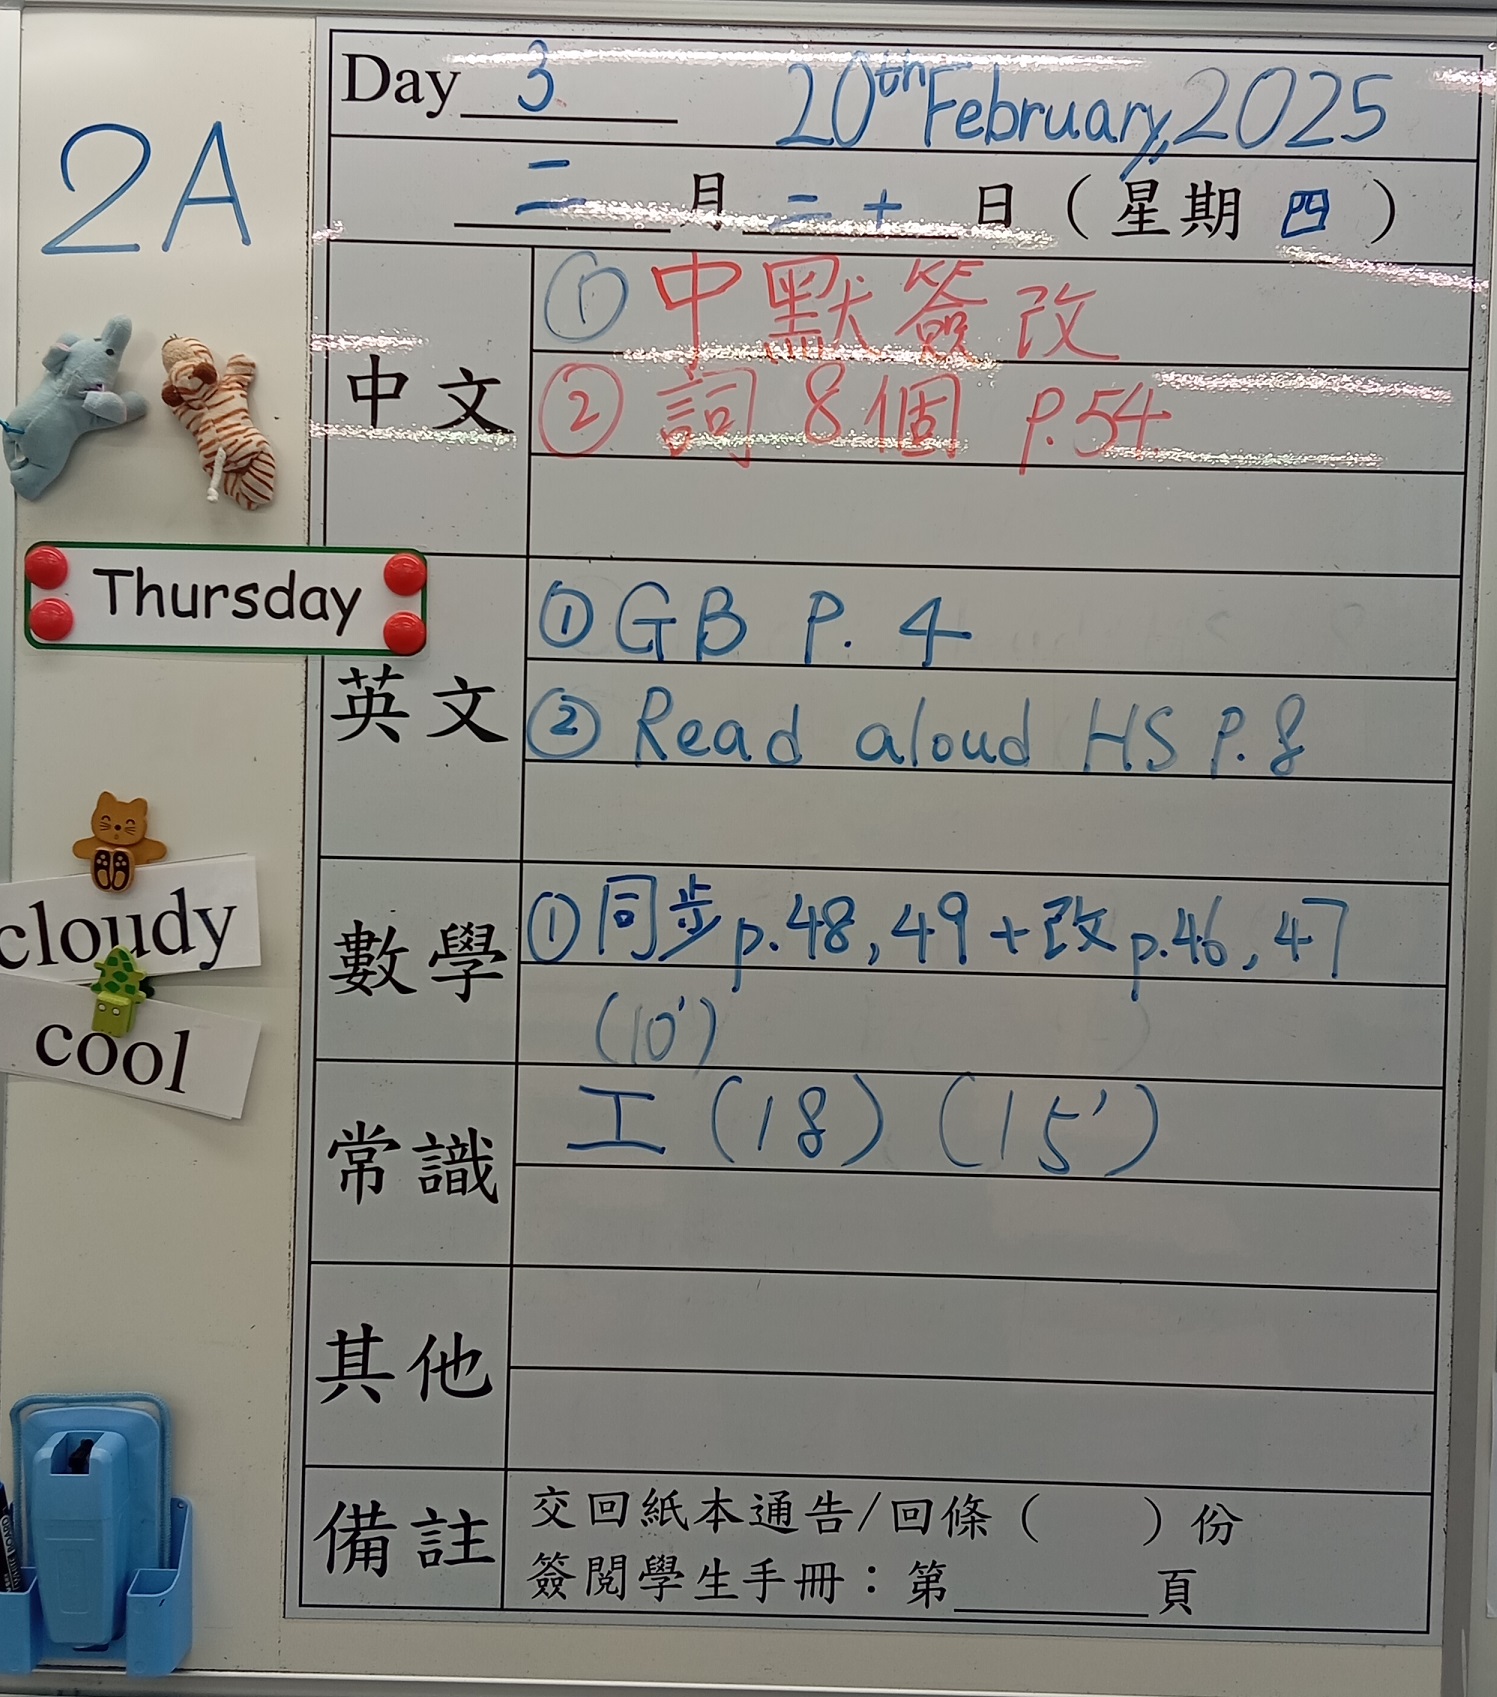 Day 3 20th February, 2025
2A
二 月 二十 日（星期 四 ）
中文
① 中默簽改
② 詞8個 p.54
Thursday
英文
① GB P. 4
② Read aloud HS P. 8
cloudy
cool
數學
① 同步 p.48, 49 + 改 p.46, 47
(10')
常識
工 (18) (15')
其他
備註
交回紙本通告/回條（ ）份
簽閱學生手冊：第 頁